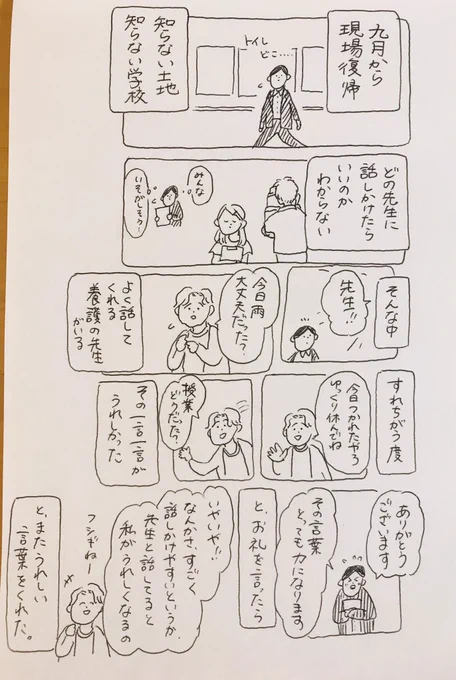 九月から
現場復帰
トイレ
どこ……
知らない土地
知らない学校
どの先生に
話しかけたら
いいのか
わからない
みんな
いそがしそう…
そんな中
先生!!
今日雨
大丈夫だった?
よく話して
くれる
養護の先生
がいる
すれちがう度
今日つかれたやろ
ゆっくり休んでね
授業
どうだった?
その一言一言が
うれしかった
ありがとう
ございます
その言葉
とっても力になります
と、お礼を言ったら
いやいや!!
なんかさ、すごく
話しかけやすいというか、
先生と話してると
私がうれしくなるの
フシギね
と、またうれしい
言葉をくれた。